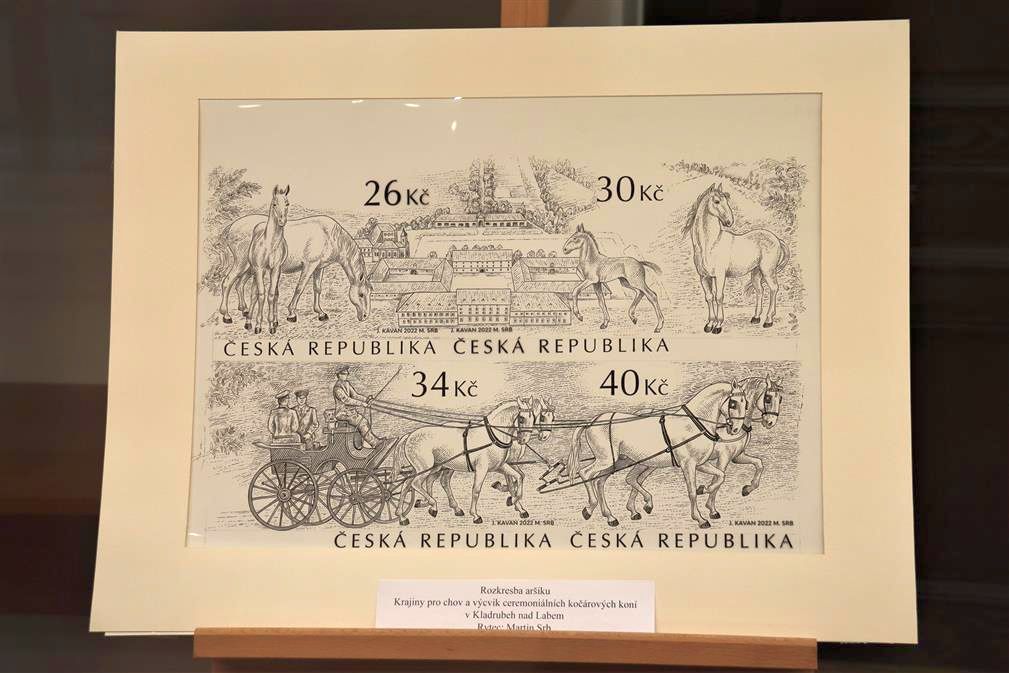 26 Kč
30 Kč
J. KAVAN 2022 M. SRB J. KAVAN 2022 M. SRB
ČESKÁ REPUBLIKA ČESKÁ REPUBLIKA
34 Kč
40 Kč
J. KAVAN 2022 M. SRB
J. KAVAN 2022 M. SRB
ČESKÁ REPUBLIKA ČESKÁ REPUBLIKA
Rozkresba aršíku
Krajiny pro chov a výcvik ceremoniálních kočárových koní
v Kladrubeh nad Labem
Rytec: Martin Srb